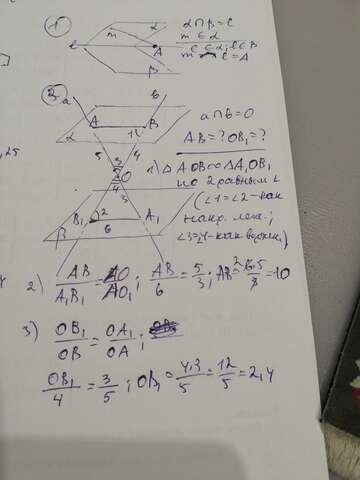 1
m
α
l
A
β
α∩β=l
m ∈ α
l ∈ α; l ∈ β
m ∩ l = A
3.
a
b
A
B
α
1
5
4
3
O
4
3
B₁
2
A₁
6
β
a∩b=O
AB=? OB₁=?
1) Δ AOB∞ΔA₁OB₁
по 2 равным ∠
(∠1=∠2-как
накр. леж.;
∠3=∠4-как вертик.)
2) AB/A₁B₁ = AO/AO₁; AB/6 = 5/3; AB = 6·5/3 = 10
3) OB₁/OB = OA₁/OA;
OB₁/4 = 3/5; OB₁ = 4·3/5 = 12/5 = 2,4